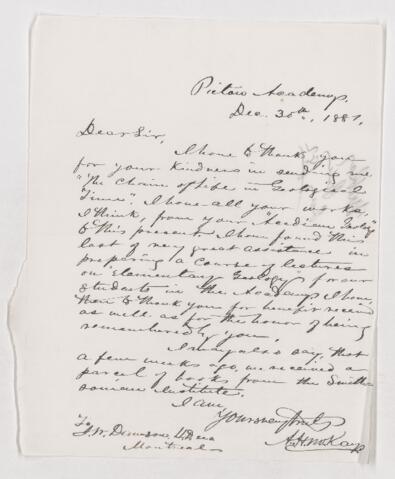 Pictou Academy,
Dec. 30th, 1881,
Dear Sir,
I have to thank you
for your kindness in sending me
"The Chain of Life in Geological
Time". I have all your works,
I think, from your "Acadian Geology"
to this present. I have found this
last of very great assistance in
preparing a course of lectures
on "Elementary Geology" for our
students in the Academy. I have
then to thank you for benefit received
as well as for the honor of being
remembered by you.
I may also say that
a few weeks ago, we received a
parcel of books from the Smith-
sonian Institute.
I am
Yours very truly
A.H. McKay
To
J.W. Dawson
Montreal